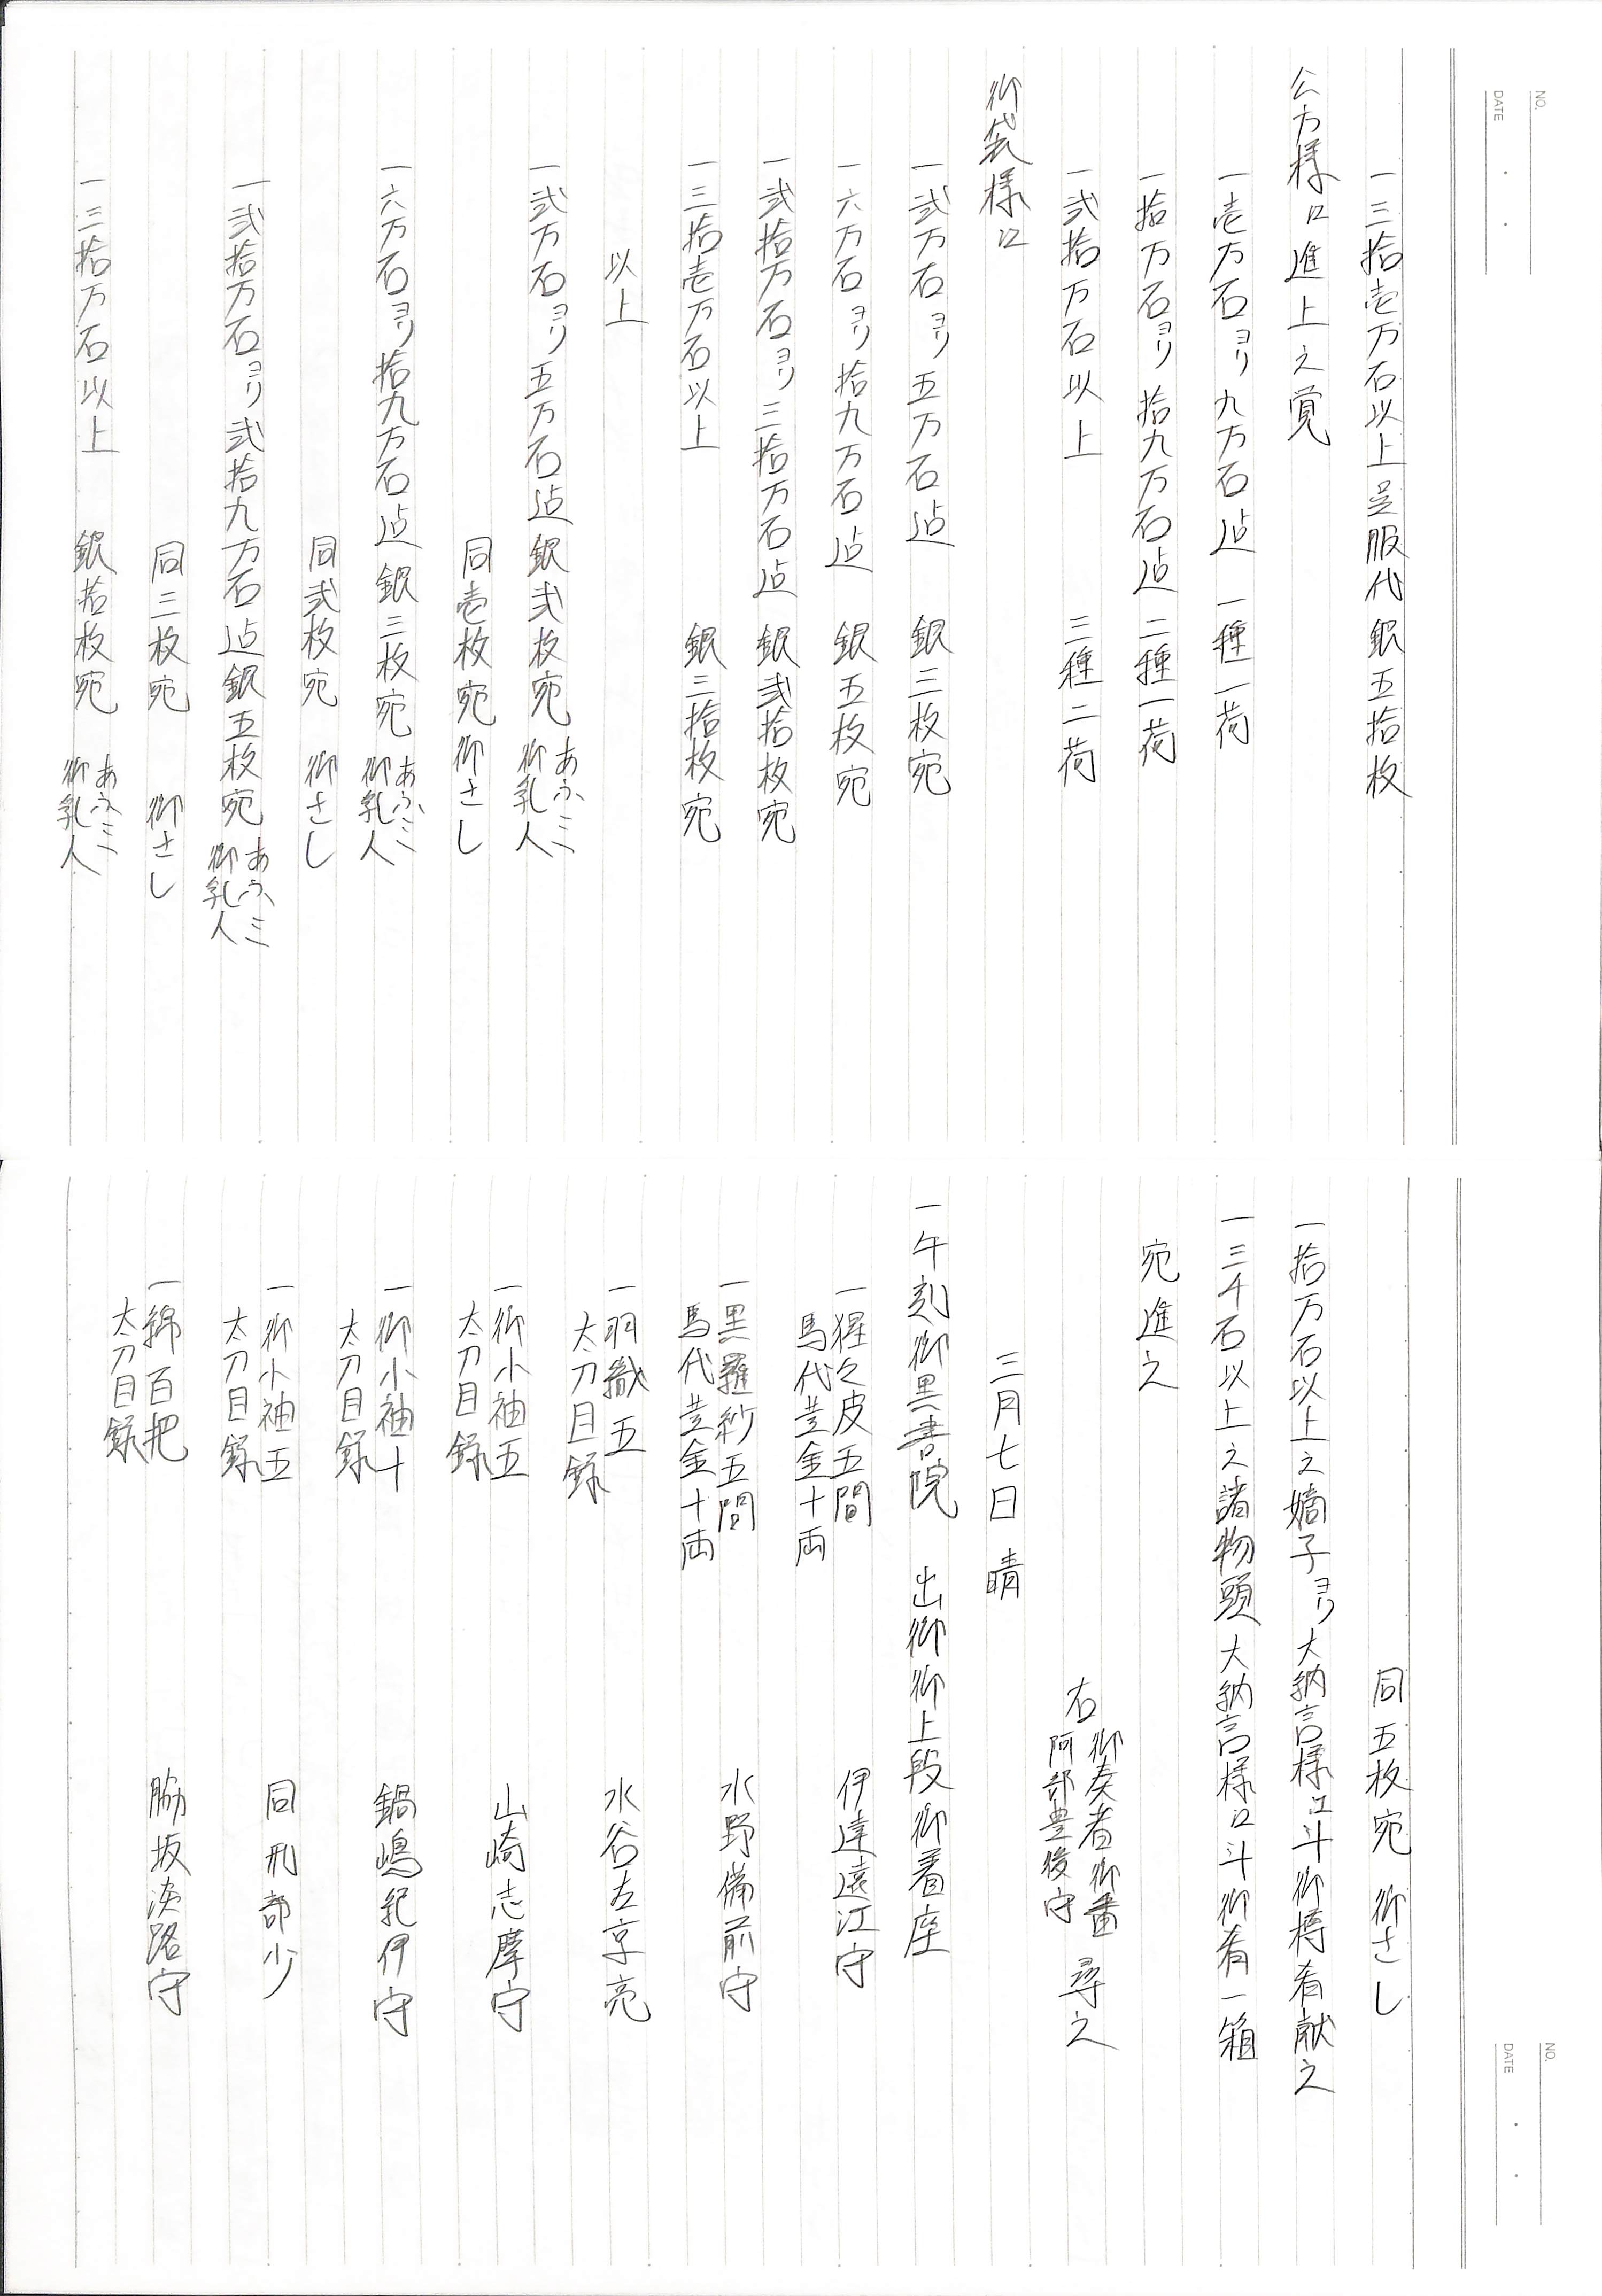 NO.
DATE
一三拾壱万石以上呉服代銀五拾枚
公方様江進上之覚
一壱万石ヨリ九万石迠 一種一荷
一拾万石ヨリ拾九万石迠 二種一荷
一弐拾万石以上 三種二荷
御袋様江
一弐万石ヨリ五万石迠 銀三枚宛
一六万石ヨリ拾九万石迠 銀五枚宛
一弐拾万石ヨリ三拾万石迠 銀弐拾枚宛
一三拾壱万石以上 銀三拾枚宛
以上
一弐万石ヨリ五万石迠銀弐枚宛 あふミ 御乳人
同壱枚宛 御さし
一六万石ヨリ拾九万石迠銀三枚宛 あふミ 御乳人
同弐枚宛 御さし
一弐拾万石ヨリ弐拾九万石迠銀五枚宛 あふミ 御乳人
同三枚宛 御さし
一三拾万石以上 銀拾枚宛 あふミ 御乳人
NO.
DATE
同五枚宛 御さし
一拾万石以上之嫡子ヨリ大納言様江斗御樽肴献之
一三千石以上之諸物頭大納言様江斗御肴一箱
宛進之
右 御奏者御番 阿部豊後守 尋之
三月七日 晴
一午刻御黒書院 出御御上段御着座
一猩々皮五間 伊達遠江守
馬代黄金十両
一黒羅紗五間 水野備前守
馬代黄金十両
一羽織五 水谷左京亮
太刀目録
一御小袖五 山崎志摩守
太刀目録
一御小袖十 鍋嶋紀伊守
太刀目録
一御小袖五 同刑部少
太刀目録
一綿百把 脇坂淡路守
太刀目録